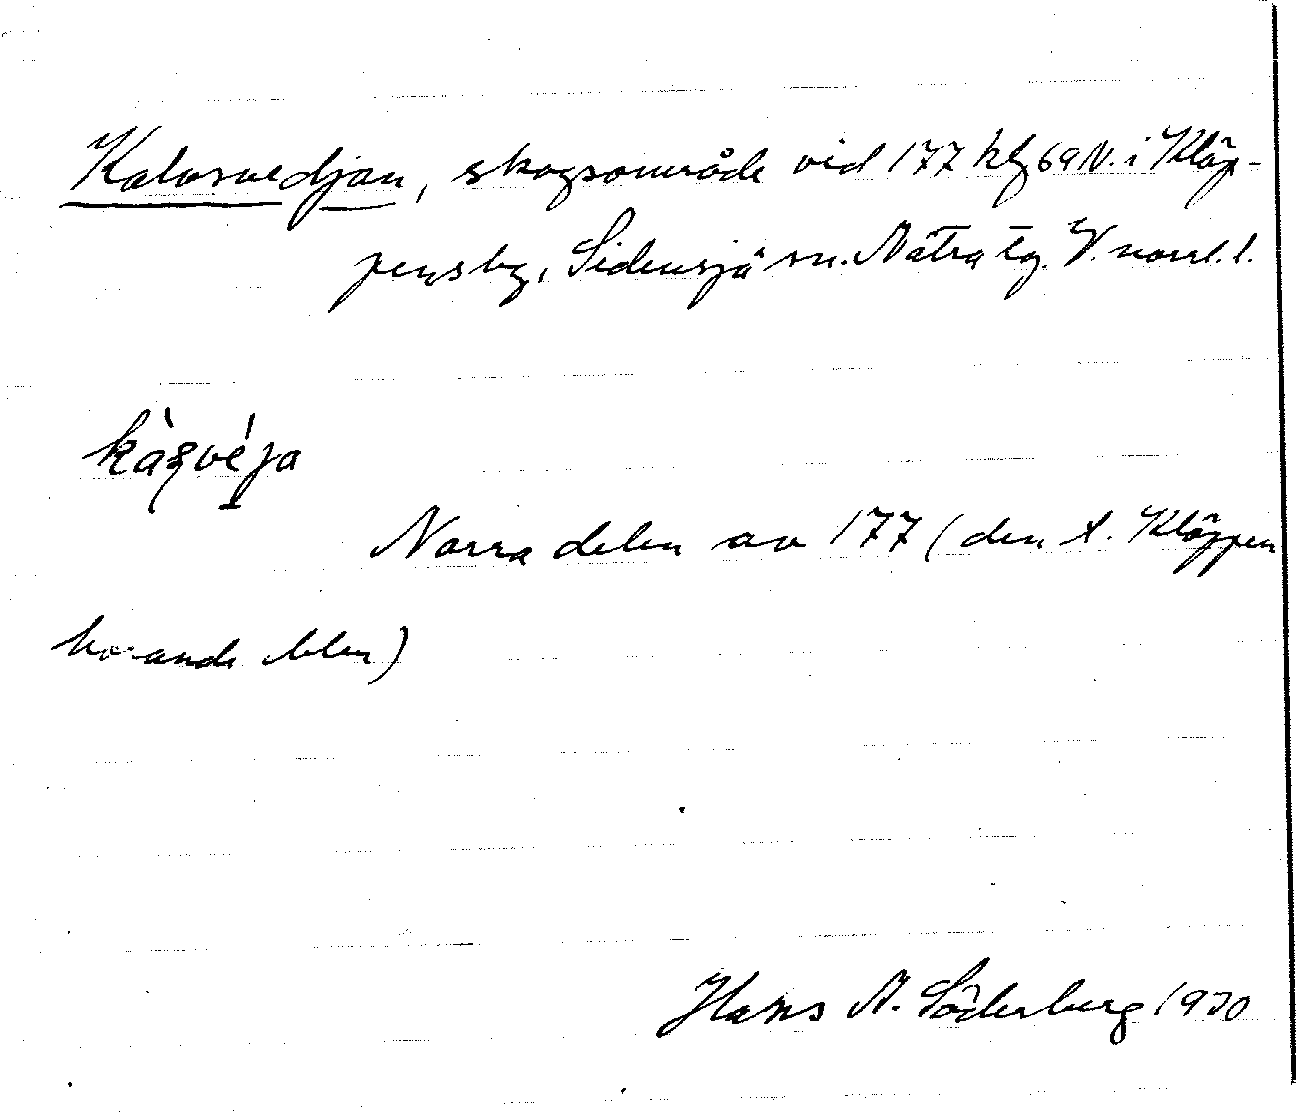 Kalvsvedjan, skogsområde vid 177 kbl 69 N. i Kläp-
pensby, Sidensjö sn. Nätra tg. V. norrl. l.
Norra delen av 177 (den t. Kläppen
hörande delen)
Hans N. Söderberg 1930